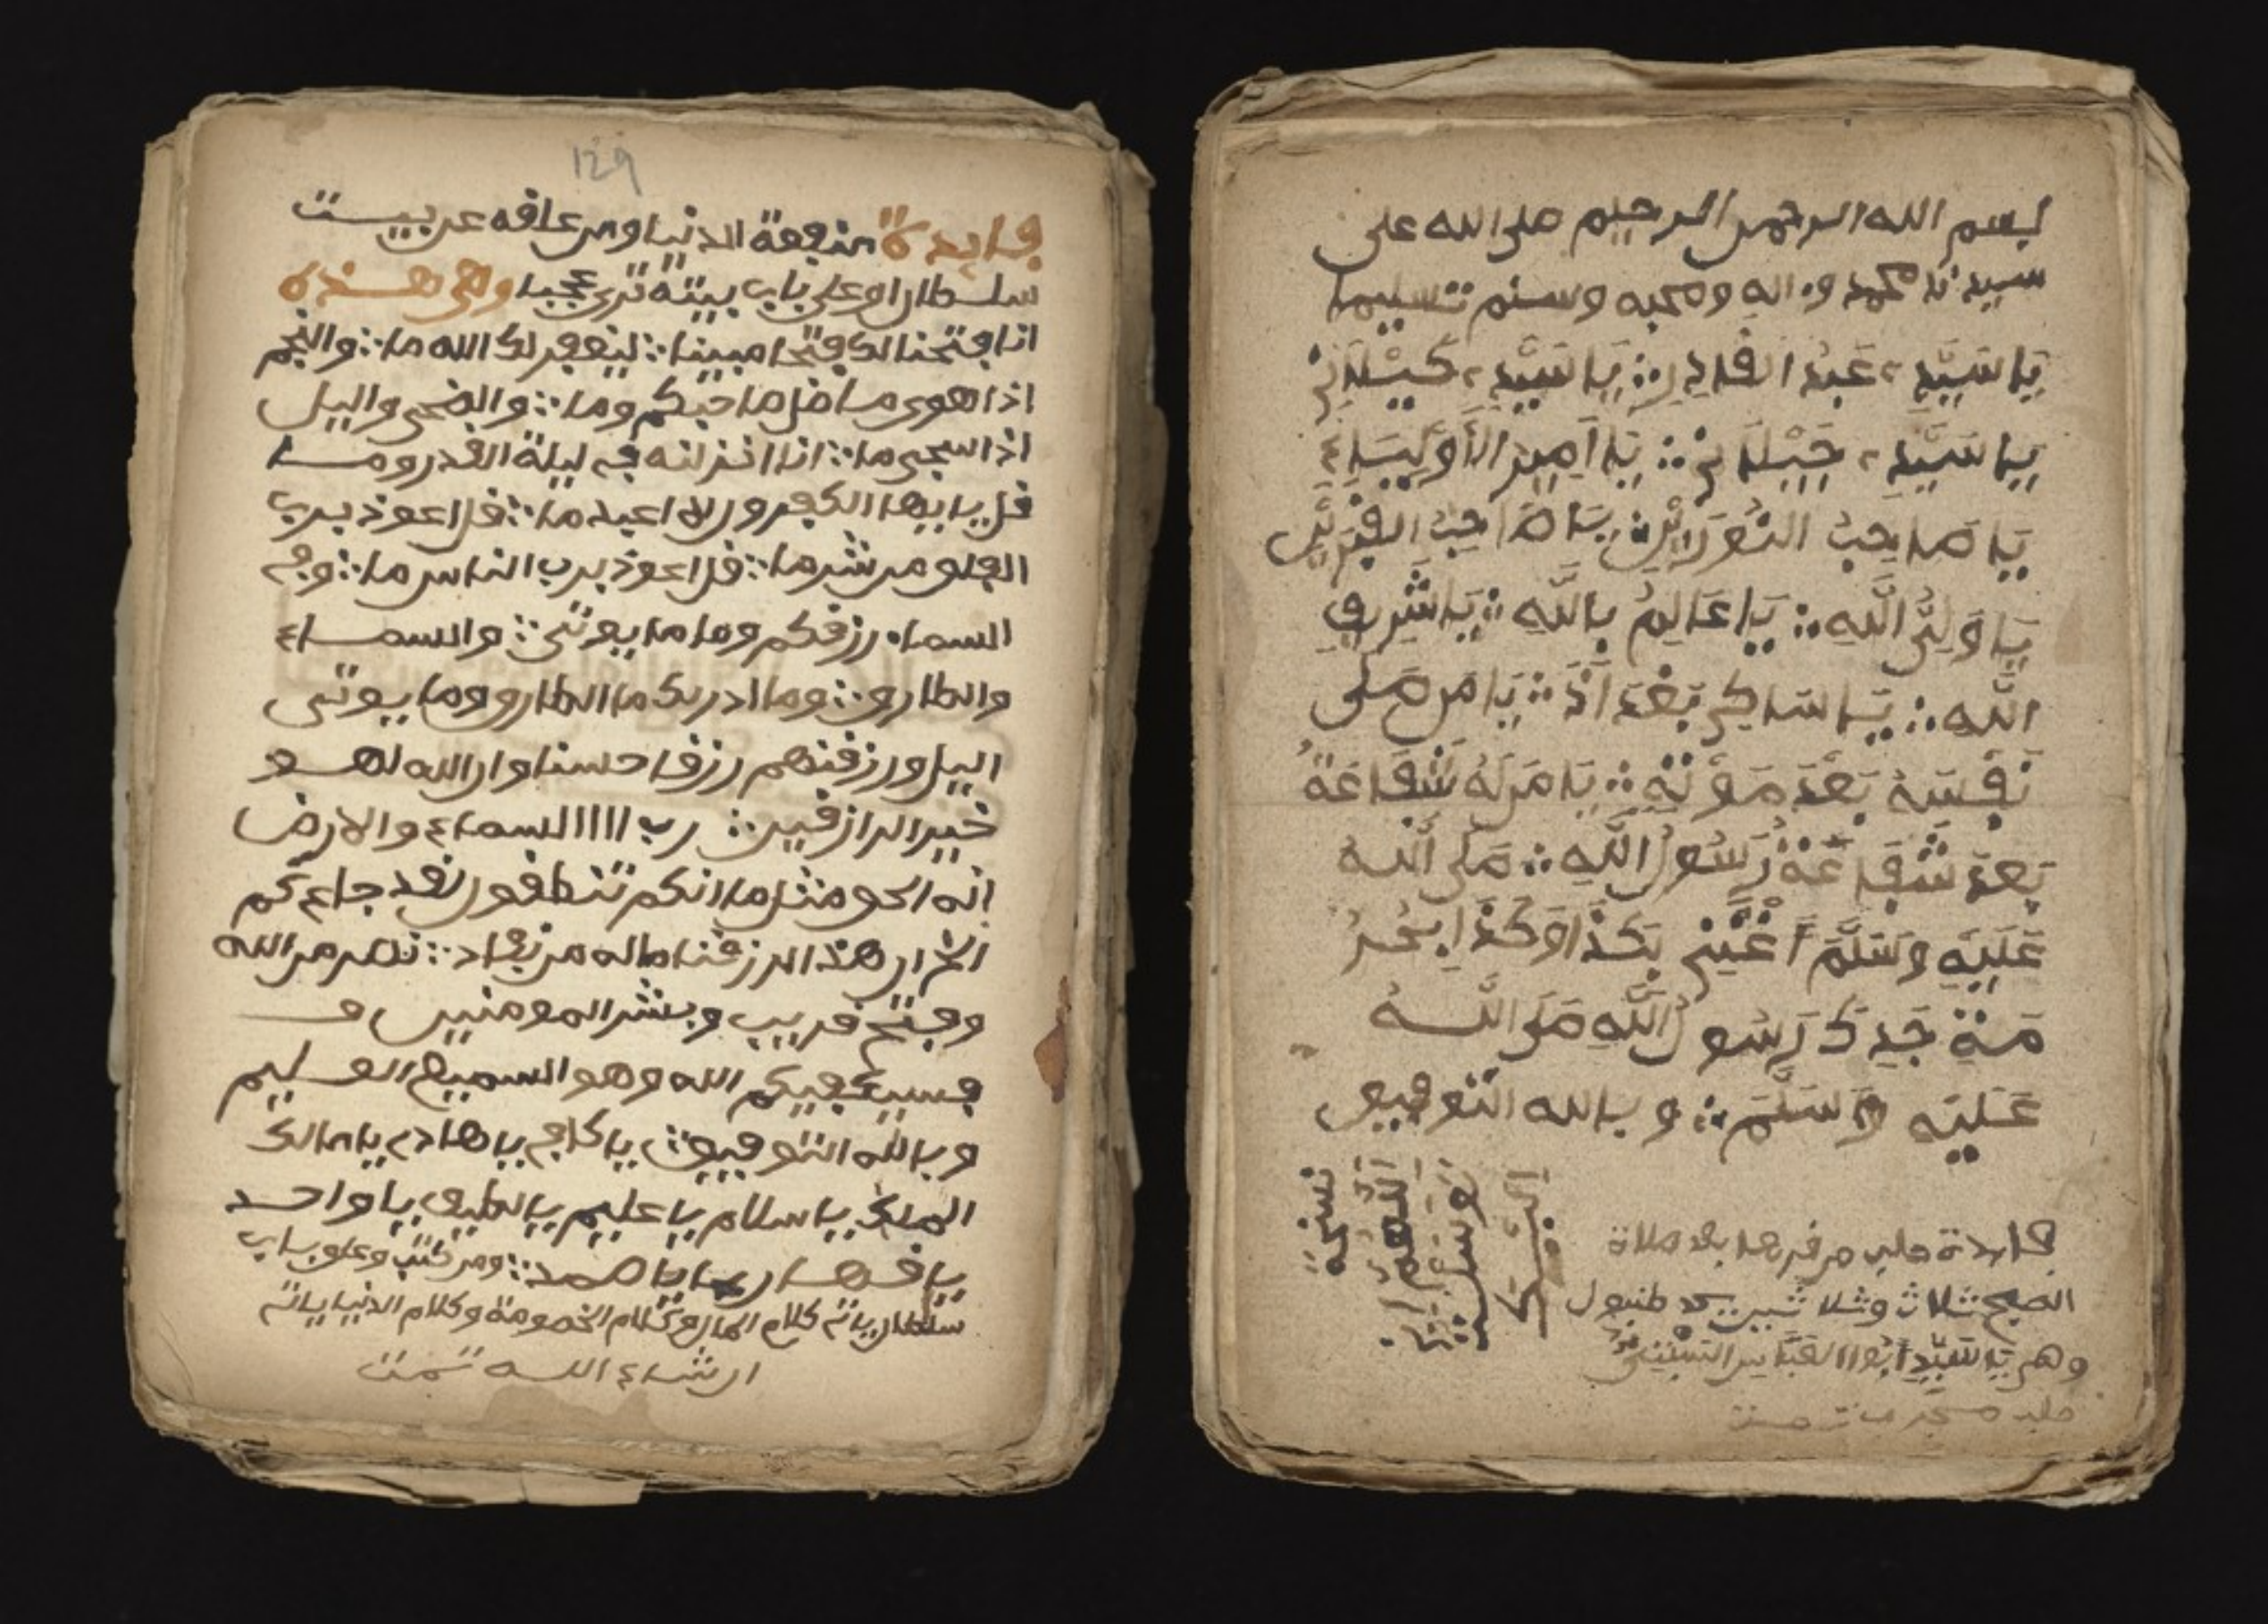 بسم الله الرحمن الرحيم صلى الله على
سيدنا محمد واله وصحبه وسلم تسليما
يَا سَيِّدِ عَبْدُ القَادِرِ يَا سَيِّدِ كَيْلَانِ
يَا سَيِّدِ جَيْلَانِ يَا اَمِيرَ الأَوْلِيَاءِ
يَا صَاحِبُ يَا صَاحِبُ
يَا وَلِيُّ اللَّهِ يَا عَالِمُ بِاللَّهِ يَا شَرِيفِ
اللَّهِ يَا سَاكِنُ بَغْدَادَ يَا مَن صَلَّى
نَفْسَهُ بَعْدَ مَوْتِهِ يَا مَن لَهُ شَفَاعَةُ
بَعْدَ شَفَاعَةِ رَسُولُ اللَّهِ صَلَى اللهُ
عَلَيْهِ وَسَلَّمَ أَغْثْنِي بَكَذَا وَكَذَا بِحُرْ
مَةِ جَدِكَ رَسُولُ اللَّهِ صَلَى اللَّهُ
عَلَيْهِ وَسَلَّمَ وبالله التوفيق
نسخة
اللهم
فايدة من قرءها بعد صلاة
الصبح ثلاث وثلاثين
وهي يَا سَيِّدِ أَبُوا العَبَّاسِ
129
فايدة منفعة الدنيا ومن علقه عن بيت
سلطان او على باب بيته ترى عجبا وهي هذه
انا فتحنا لك فتحا مبينا ليغفر لك الله ما والنجم
اذا هوى ما ضل صاحبكم وما والضحى واليل
اذا سجى ما انا انزلنه في ليلة القدر وما
قل يايها الكفرون لا اعبد ما قل اعوذ برب
الفلق من شر ما قل اعوذ برب الناس ما وفي
السماء رزقكم وما والسماء
والطارق وما ادريك ما الطارق وما
اليل ورزقنهم رزقا حسنا وان الله لهو
خير الرازقين رب السماء والارض
انه الحق مثل ما انكم تنطقون لقد جاءكم
ان هذا لرزقنا ماله من نفاد نصر من الله
وفتح قريب وبشر المومنين
فسيكفيكم الله وهو السميع العليم
وبالله التوفيق يا كافي يا هادي يا مالك
الملك يا سلام يا عليم يا لطيف يا واحد
يا قهار يا صمد ومن كتب وعلق باب
سلطان ياته كلام المال وكلام الخصومة وكلام الدنيا ياته
ان شاء الله تمت